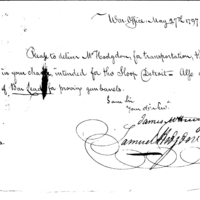 War Office May 27th 1797
Please to deliver Mr Hodgdon, for transportation,
in your charge intended for the Sloop Detroit - Also
of Bar Lead for proving gun barrels.
I am Sir
Your
James McHenry
Samuel Hodgdon